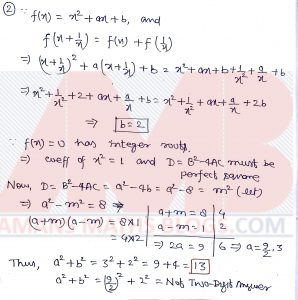 ② ∵ f(x) = x² + ax + b, and
f(x + 1/x) = f(x) + f(1/x)
⇒ (x + 1/x)² + a(x + 1/x) + b = x² + ax + b + 1/x² + a/x + b
⇒ x² + 1/x² + 2 + ax + a/x + b = x² + 1/x² + ax + a/x + 2b
⇒ b = 2
∵ f(x) = 0 has integer roots,
⇒ coeff of x² = 1 and D = B² - 4AC must be
perfect square
Now, D = B² - 4AC = a² - 4b = a² - 8 = m² (let)
⇒ a² - m² = 8 ⇒
(a+m)(a-m) = 8×1 | a+m = 8 | 4
= 4×2 | a-m = 1 | 2
⇒ 2a = 9 | 6 ⇒ a = 9/2, 3
Thus, a² + b² = 3² + 2² = 9 + 4 = 13
a² + b² = (9/2)² + 2² = Not Two-Digit Answer